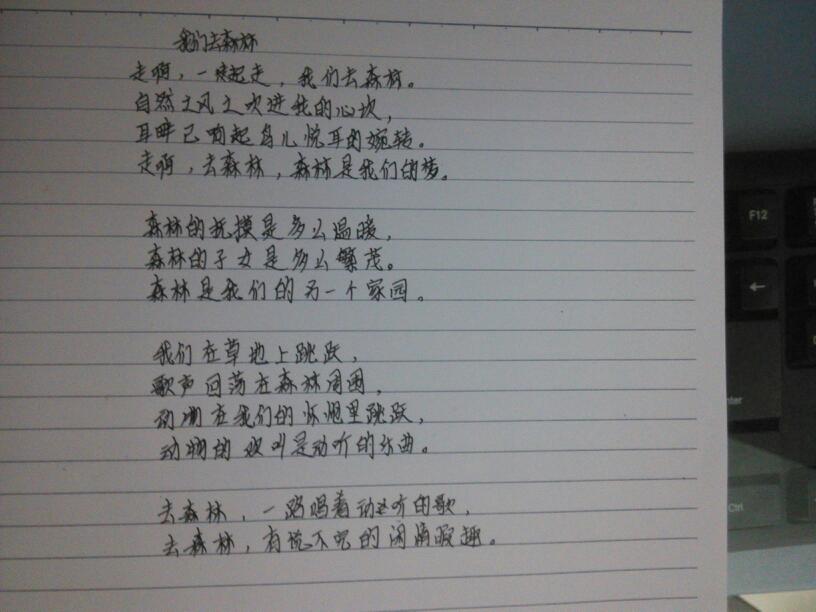 我们去森林
走啊,一起走,我们去森林。
自然之风又吹进我的心坎,
耳畔已响起鸟儿悦耳的婉转。
走啊,去森林,森林是我们的梦。
森林的抚摸是多么温暖,
森林的子女是多么繁茂。
森林是我们的另一个家园。
我们在草地上跳跃,
歌声回荡在森林周围,
动物在我们的怀抱里跳跃,
动物的欢叫是动听的乐曲。
去森林,一路唱着动听的歌,
去森林,有说不完的闲情暇趣。
F12
←
Ctrl